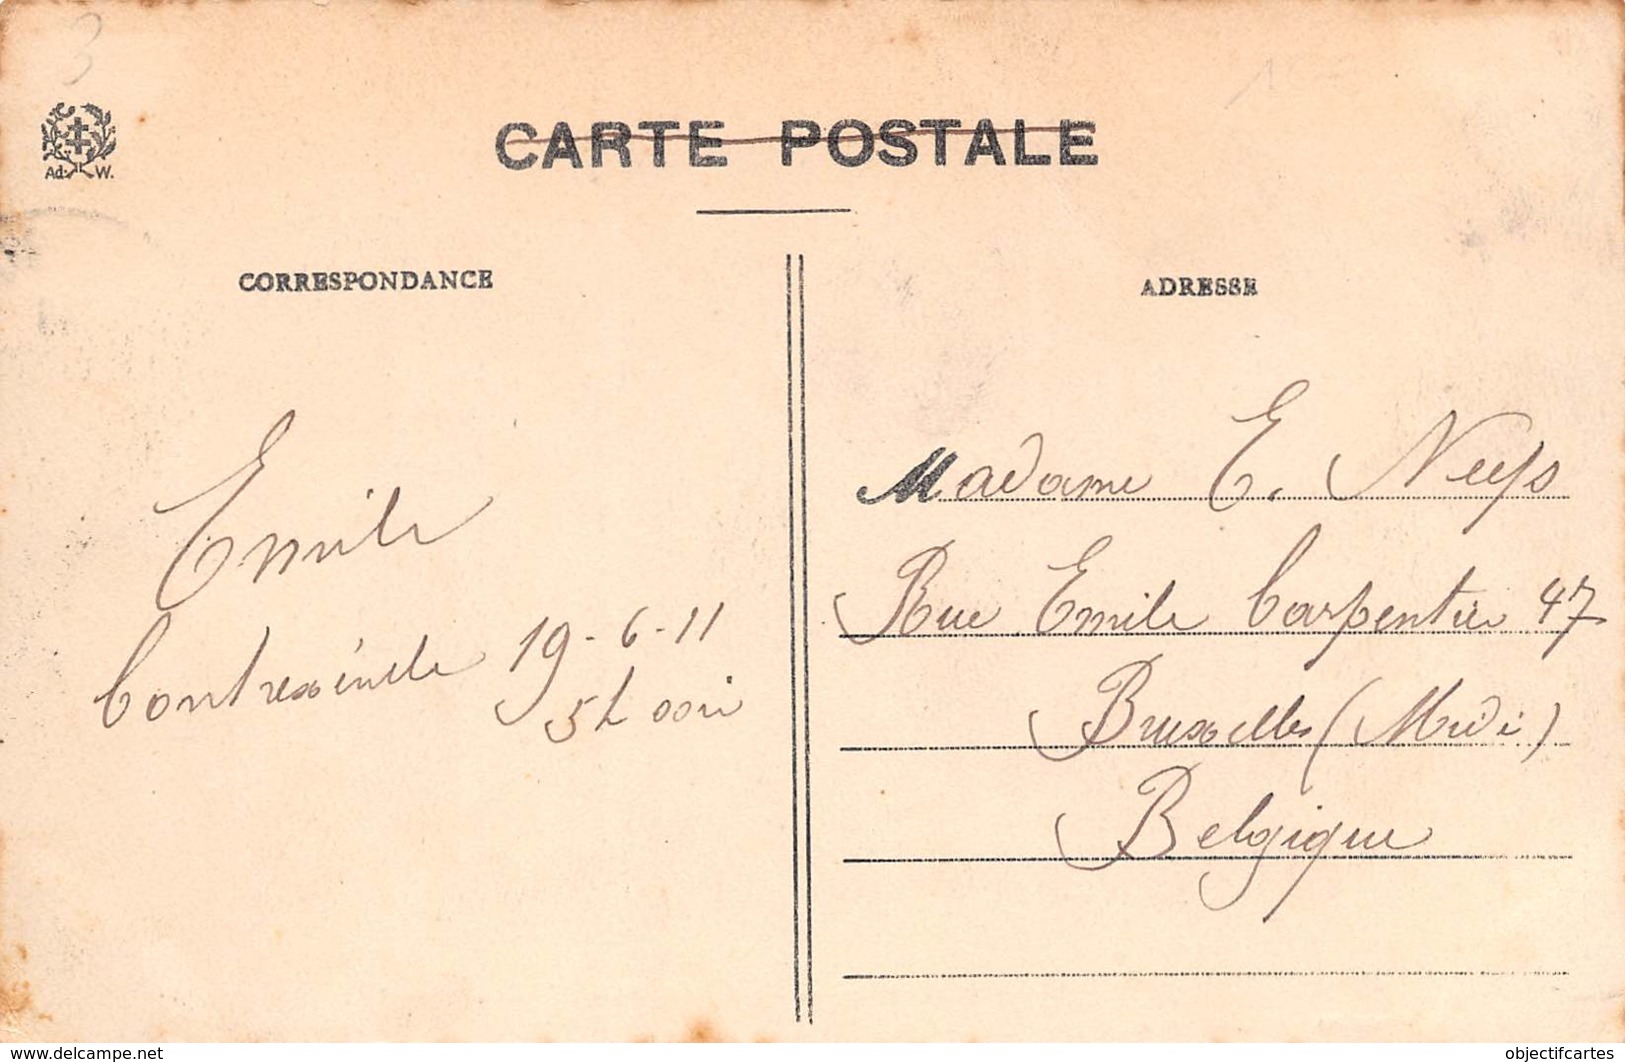 3
Ad. W.
CARTE POSTALE
CORRESPONDANCE
Emile
Contrexéville 19-6-11
5h soir
ADRESSE
Madame E. Neys
Rue Emile Carpentier 47
Bruxelles (Midi)
Belgique
www.delcampe.net
objectifcartes